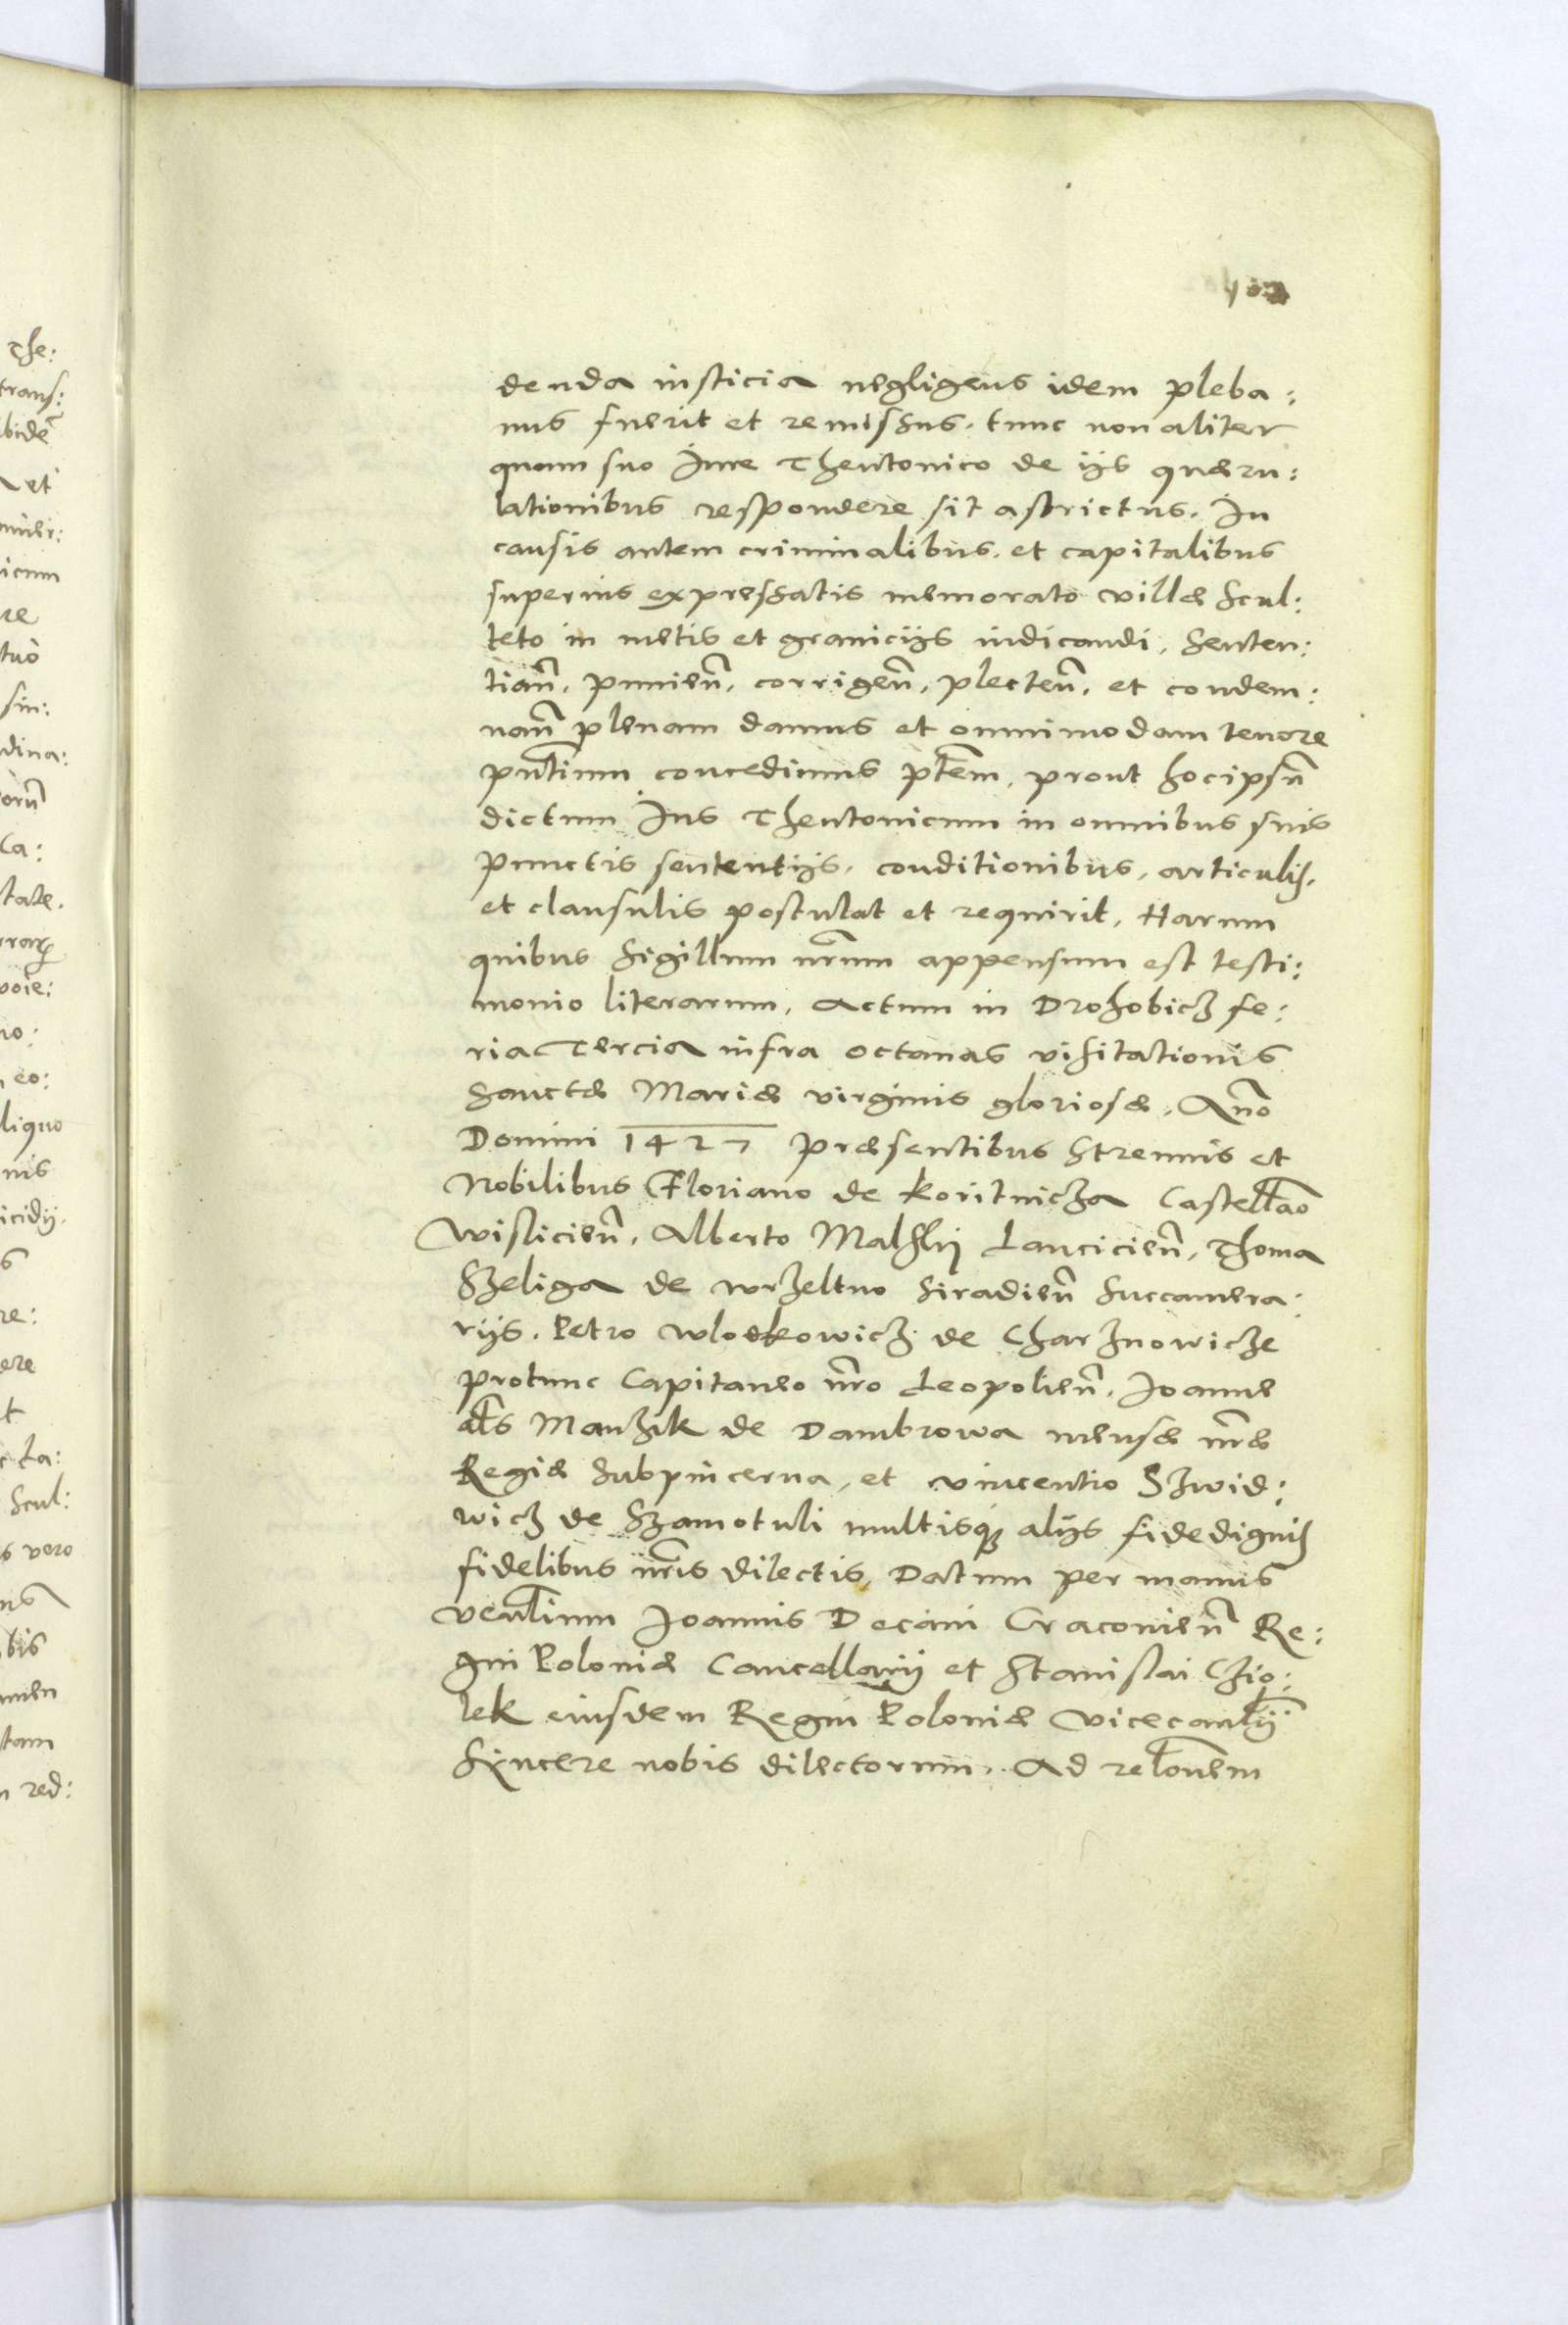 denda iusticia negligens idem pleba:
nus fuerit et remissus. tunc non aliter
quam suo Iure Theutonico de ijs quæru:
lationibus respondere sit astrictus. In
causis autem criminalibus. et capitalibus
superius expressatis memorato villæ Scul:
teto in metis et granicijs iudicandi, Senten:
tiañ, punieñ, corrigeñ, plecteñ, et condem:
nañ plenam damus et omnimodam tenore
pñtium concedimus ptẽm, prout hocipsũ
dictum Ius Theutonicum in omnibus suis
punctis sententijs, conditionibus, articulis,
et clausulis postulat et requirit, Harum
quibus Sigillum nr̃um appensum est testi:
monio literarum, Actum in Drohobicz fe:
ria Tercia infra octauas visitationis
Sanctæ Mariæ virginis gloriosæ, Año
Domini 1427 præsentibus Strennis et
Nobilibus Floriano de Koritnicza Castellão
Wisliciẽñ, Alberto Malsky Lancicień, Thoma
Szeliga de Wrzeltno Siradień Succamera:
rijs. Petro Wlodkowicz de Charznowicze
protunc Capitaneo nr̃o Leopolień, Ioanne
als Manzik de Dambrowa mensæ nr̃æ
Regiæ Subpincerna, et vincentio Szwid:
wicz de Szamotuli multisq; alijs fidedignis
fidelibus nr̃is dilectis, Datum per manus
Veñlium Ioannis Decani Cracouień Re:
gni Poloniæ Cancellarij et Stanislai Czio:
lek eiusdem Regni Poloniæ Vicecanlij
Syncere nobis dilectorum. Ad relõnem
The:
trans:
bidẽ
et
icum
re
tuo
sin:
dina:
orũ
Ca:
tate.
uo:
eo:
liquo
nis
icidij.
re:
ere
t
Scul:
s vero
bis
men
tam
red: